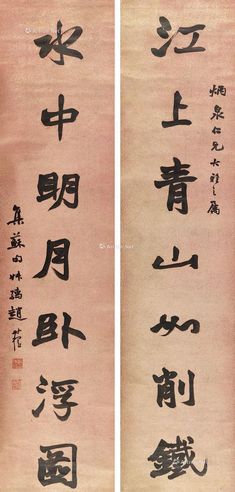 江上青山如削鐵
炳泉仁兄大雅之屬
水中明月臥浮圖
集蘇句 姝孺趙熙